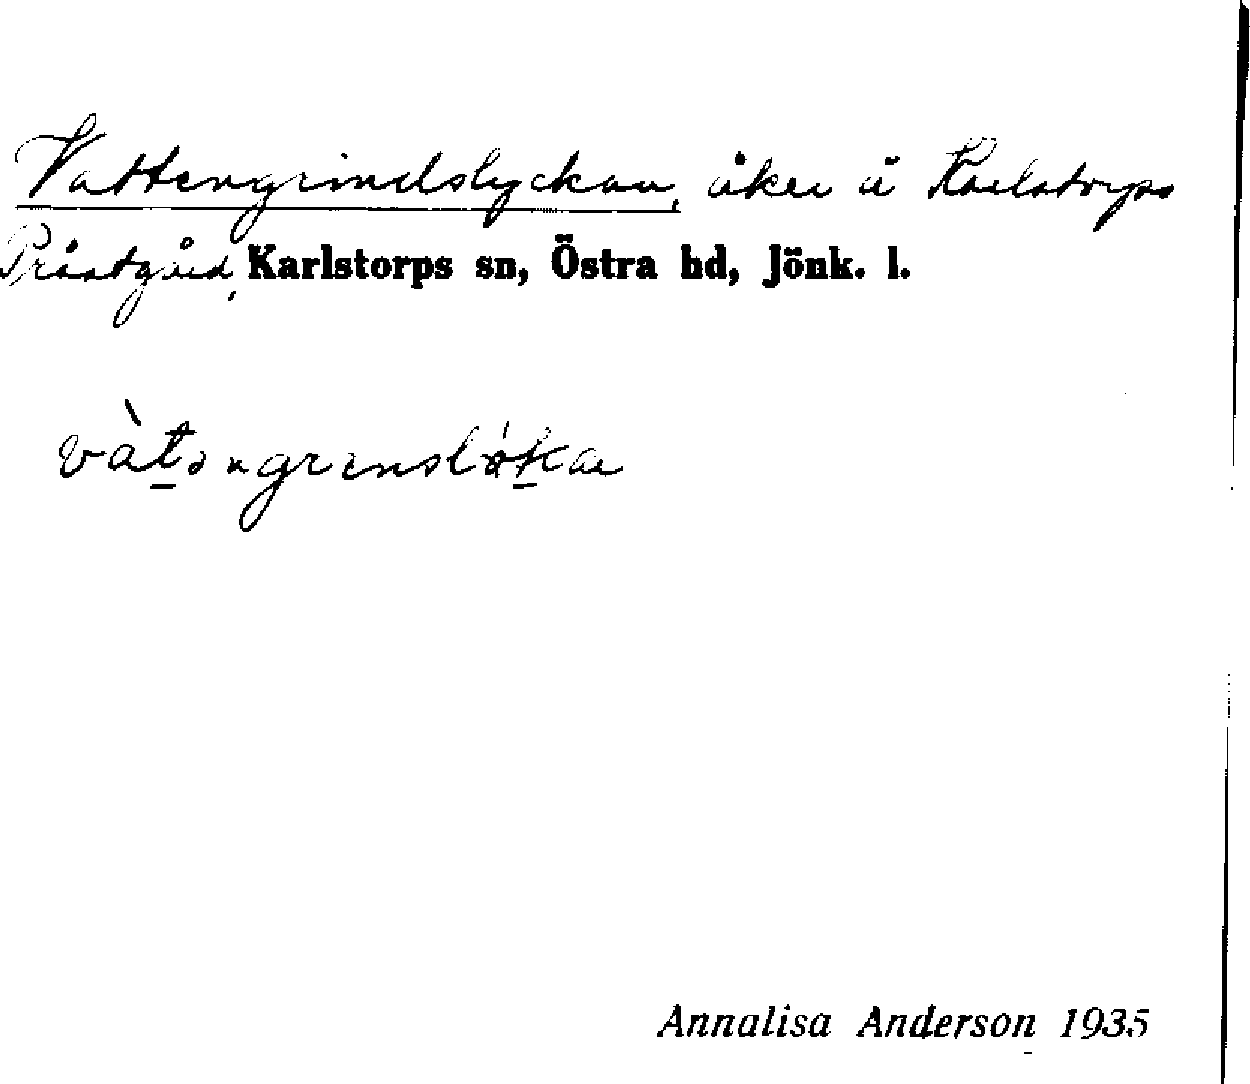 Vattengrindslyckan, åker å Karlstorps
Prästgård, Karlstorps sn, Östra hd, Jönk. l.
Annalisa Anderson 1935